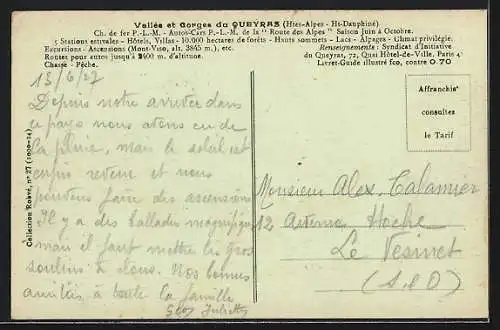 Vallée et Gorges du QUEYRAS (Htes-Alpes - Ht-Dauphiné)
Ch. de fer P.-L.-M. - Autos-Cars P.-L.-M. de la "Route des Alpes" Saison Juin à Octobre.
5 Stations estivales - Hôtels, Villas - 10.000 hectares de forêts - Hauts sommets - Lacs - Alpages - Climat privilégié.
Excursions - Ascensions (Mont-Viso, alt. 3845 m.), etc.
Routes pour autos jusqu'à 2400 m. d'altitude.
Chasse - Pêche.
Renseignements : Syndicat d'Initiative
du Queyras, 72, Quai Hôtel-de-Ville, Paris 4e
Livret-Guide illustré fco, contre 0.70
Affranchir
consultez
le Tarif
13/6/27
Depuis notre arrivée dans
ce pays nous avons eu de
la pluie, mais le soleil est
enfin revenu et nous
pouvons faire des ascensions
Il y a des ballades magnifiques
mais il faut mettre les gros
souliers à clous. Nos bonnes
amitiés à toute la famille
Juliette
Monsieur Alex. Calamier
12 Avenue Hoche
Le Vésinet
(S et O)
Collection Robvé, n° 27 (1000-14)